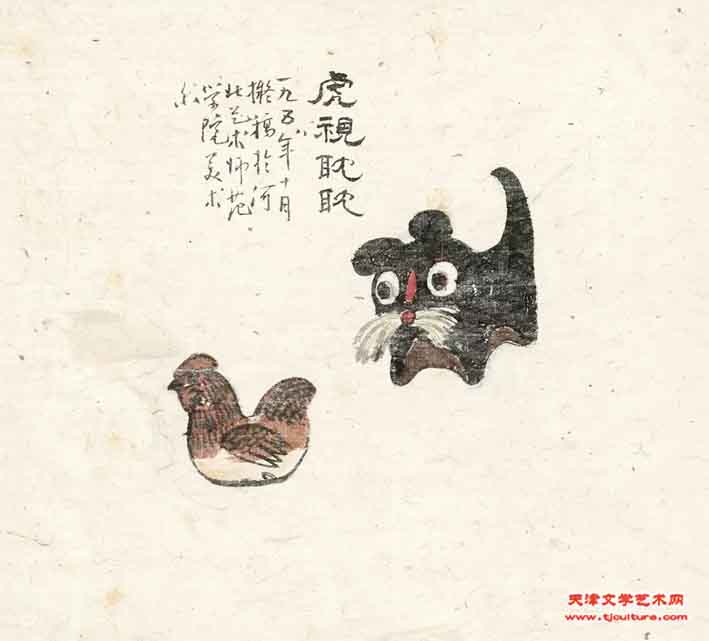 虎視耽耽
一九五八年十月
擬稿於河
北艺术师范
学院美术
系
天津文学艺术网
www.tjculture.com